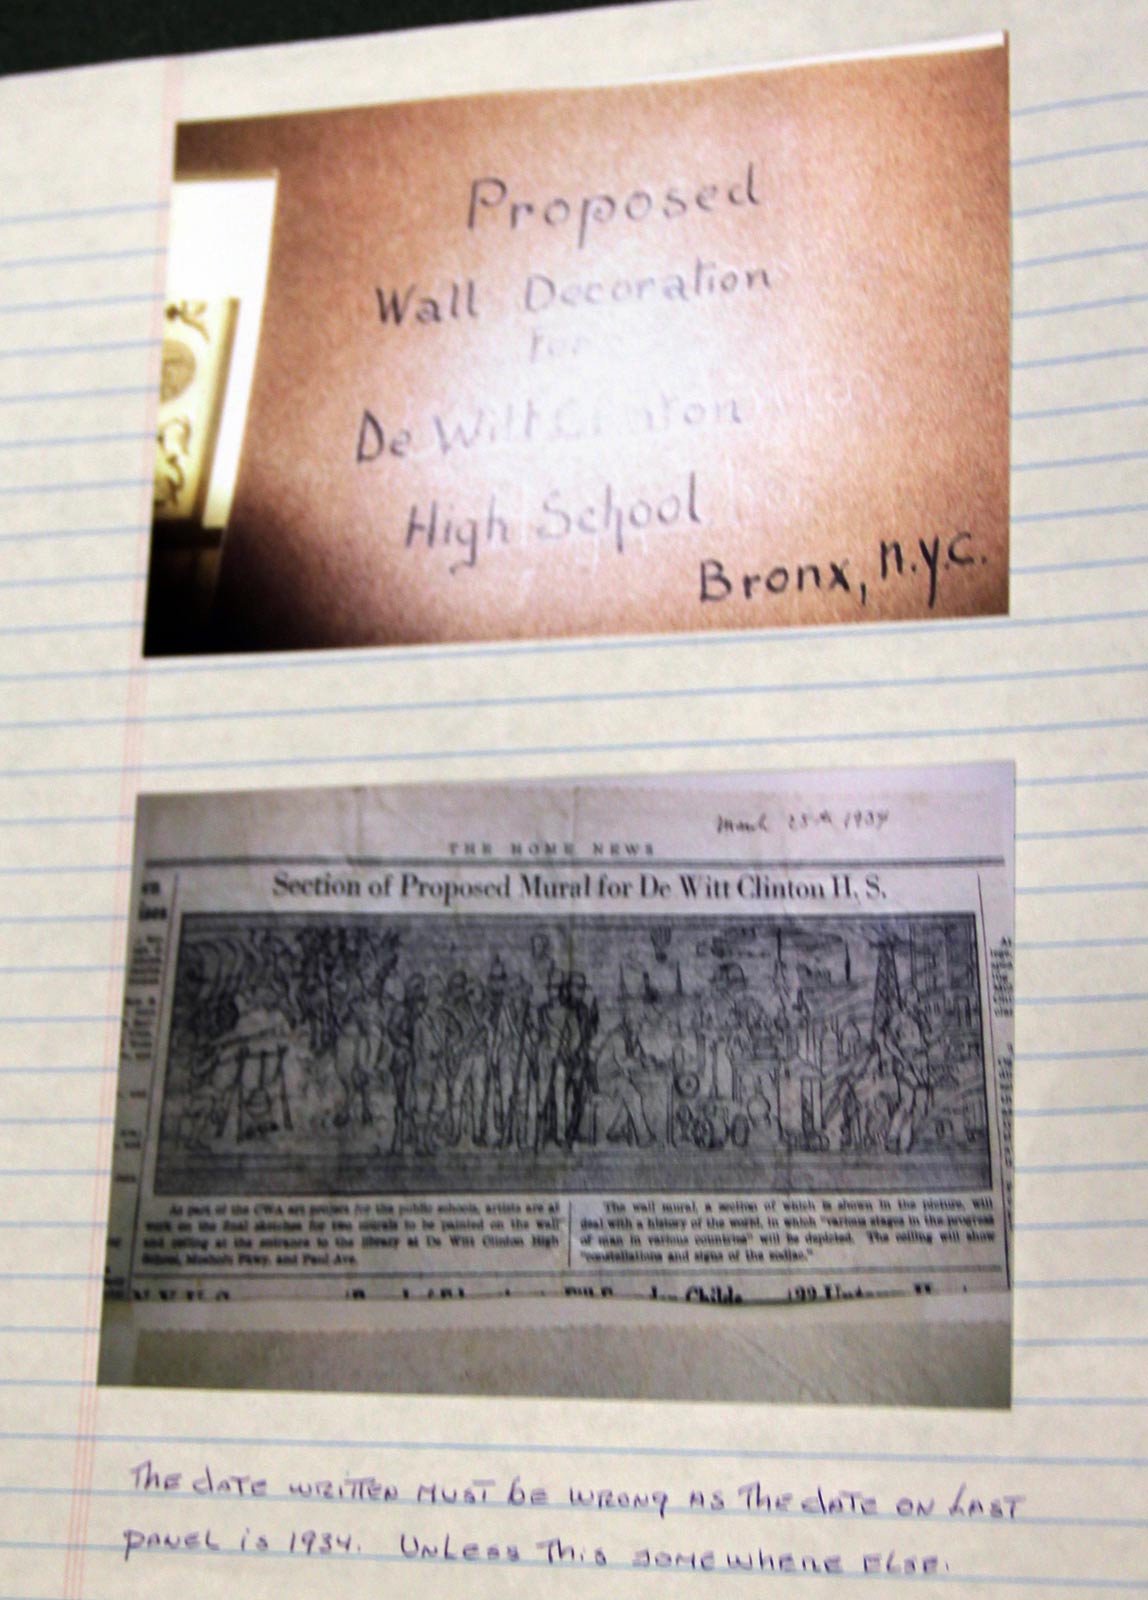 Proposed
Wall Decoration
for
De Witt Clinton
High School
Bronx, n.y.c.
March 25th
THE HOME NEWS
Section of Proposed Mural for De Witt Clinton H. S.
As part of the CWA art project for the public schools, artists are at
work on the final sketches for two murals to be painted on the wall
and ceiling at the entrance to the library at De Witt Clinton High
School, Mosholu Pkwy. and Paul Ave.
The wall mural, a section of which is shown in the picture, will
deal with a history of the world, in which "various stages in the progress
of man in various countries" will be depicted. The ceiling will show
"constellations and signs of the zodiac."
Childs
THE DATE WRITTEN MUST BE WRONG AS THE DATE ON LAST
PANEL IS 1934. UNLESS THIS SOMEWHERE ELSE.